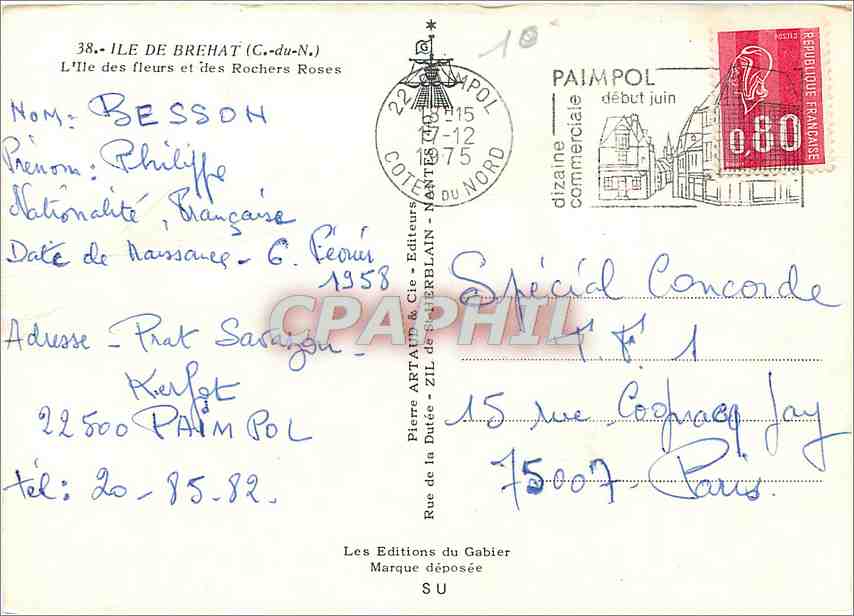 38.- ILE DE BREHAT (C.-du-N.)
L'Ile des fleurs et des Rochers Roses
Nom: BESSON
Prénom: Philippe
Nationalité, Française
Date de Naissance - 6. Février
1958
Adresse - Prat
Kerfot
22500 PAIMPOL
tél: 20 - 85-82.
10
22 PAIMPOL
18-15
17-12
1975
COTES DU NORD
PAIMPOL
début juin
dizaine commerciale
POSTES
REPUBLIQUE FRANÇAISE
0,80
Spécial Concorde
T.F.1
15 rue Cognacq Jay
75007 - Paris.
Pierre ARTAUD & Cie - Editeurs
Rue de la Dutée - ZIL de St-HERBLAIN - NANTES
CPAPHIL
Les Editions du Gabier
Marque déposée
SU